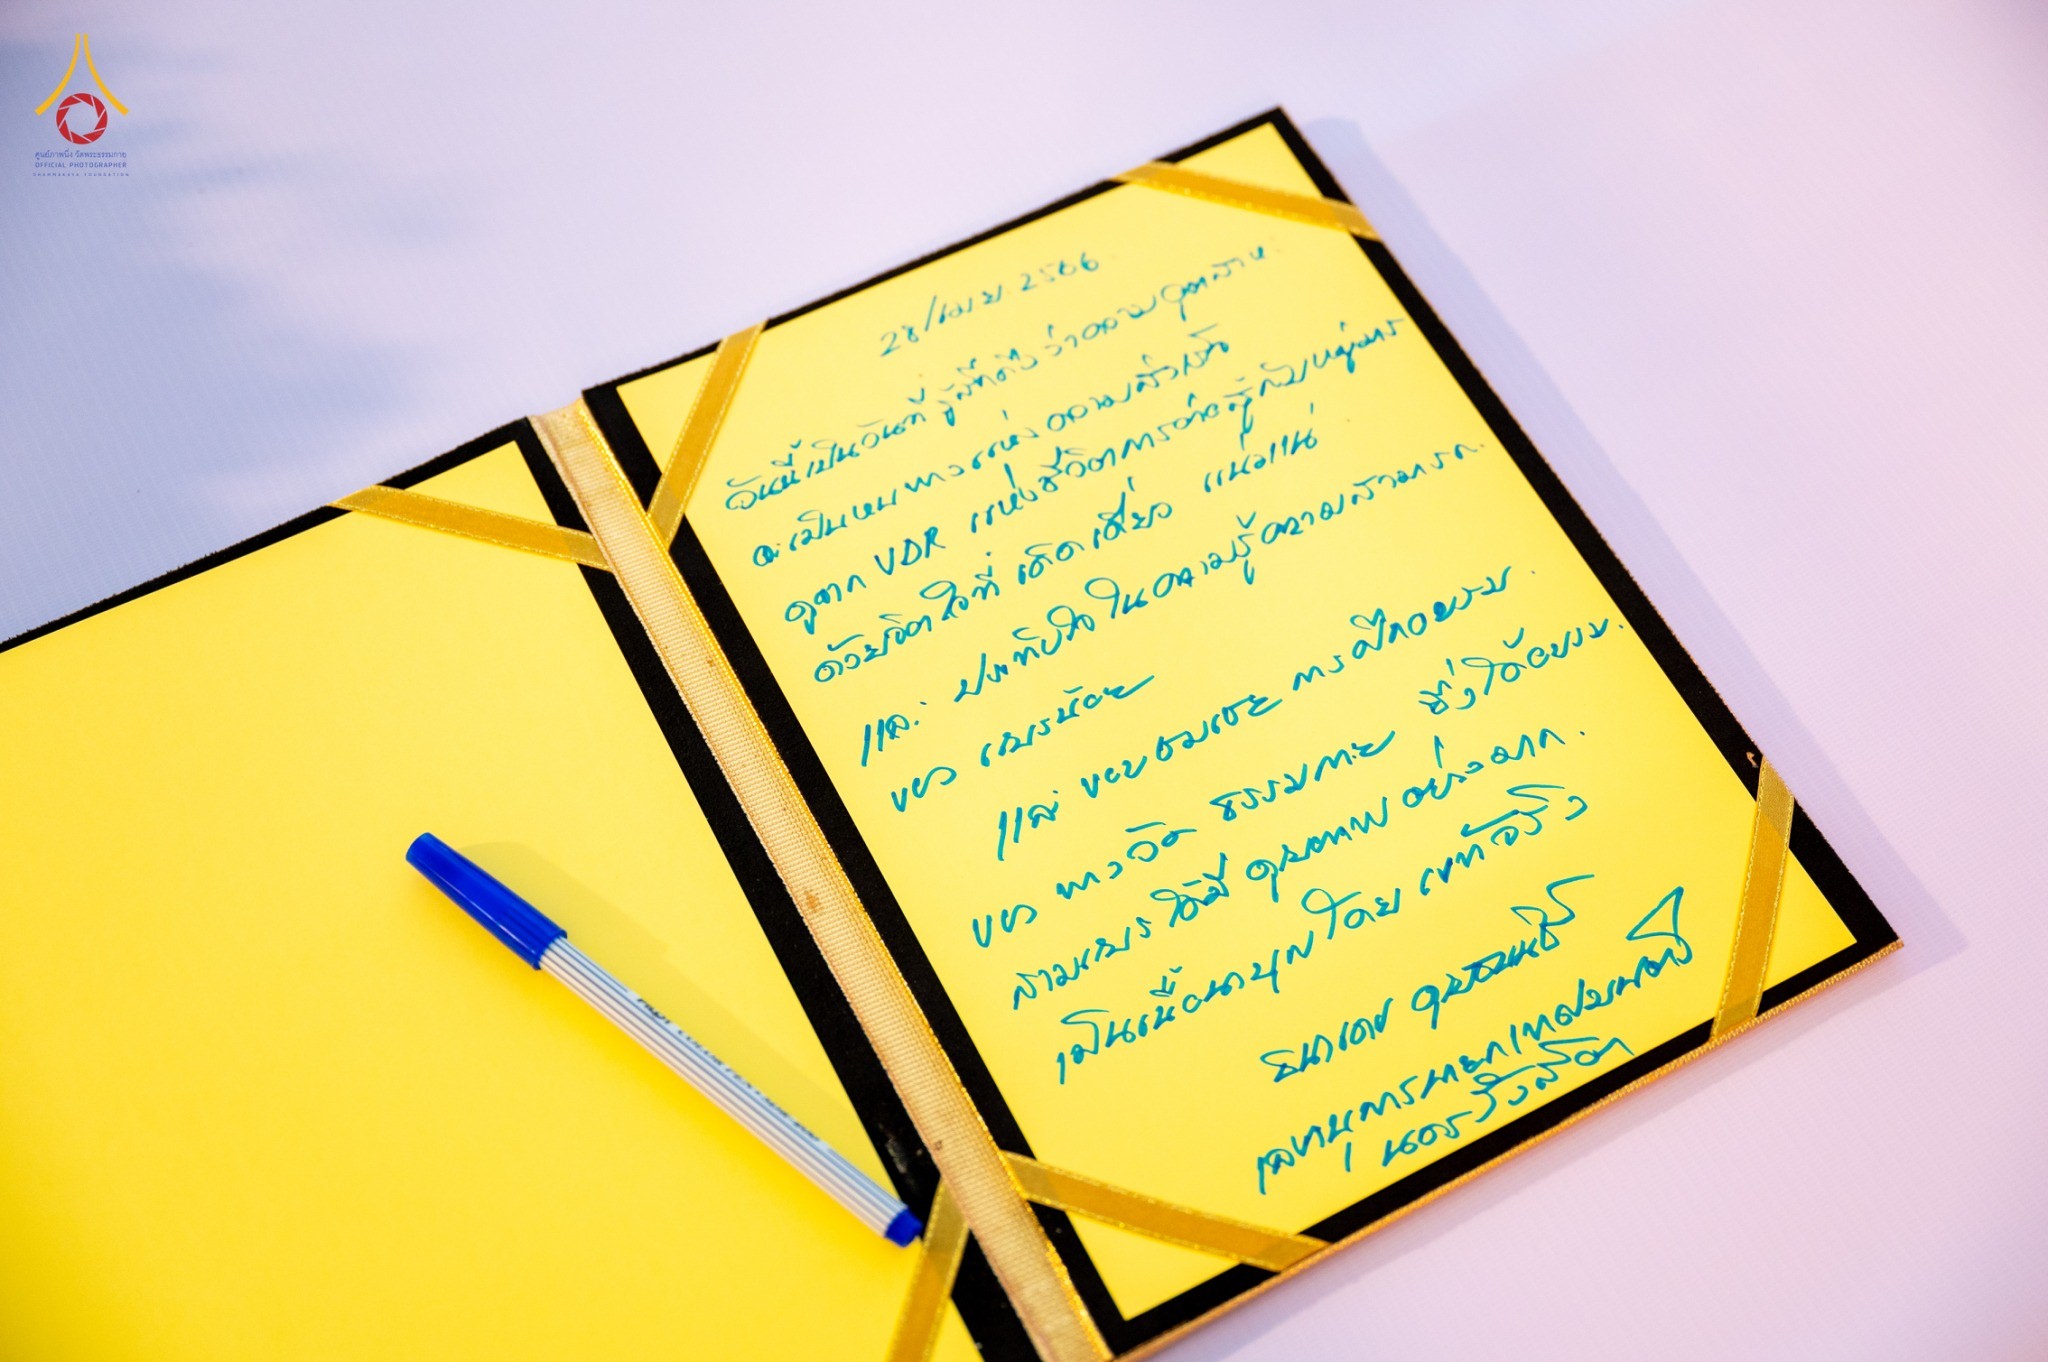 ศูนย์ภาพนิ่ง วัดพระธรรมกาย
OFFICIAL PHOTOGRAPHER
DHAMMAKAYA FOUNDATION
28/เมย. 2566
วันนี้เป็นวันที่ รู้สึกดีใจ ว่าความอุตสาห.
จะเป็นหนทางแห่ง ความสำเร็จ
ดูจาก VDR แห่งชีวิตการต่อสู้กับหมู่มาร
ด้วยจิตใจที่ เด็ดเดี่ยว แน่วแน่
และ ประทับใจ ในความรู้ความสามารถ.
ของ เณรน้อย
และ ขอชมเชย การฝึกอบรม.
ของ ทางวัด ธรรมกาย ซึ่งได้อบรม.
สามเณร ให้มี คุณภาพ อย่างมาก.
เป็นเนื้อนาบุญโดย แท้จริง
ธนาเดช
เลขานุการนายกเทศมนตรี
นครรังสิต
PILOT